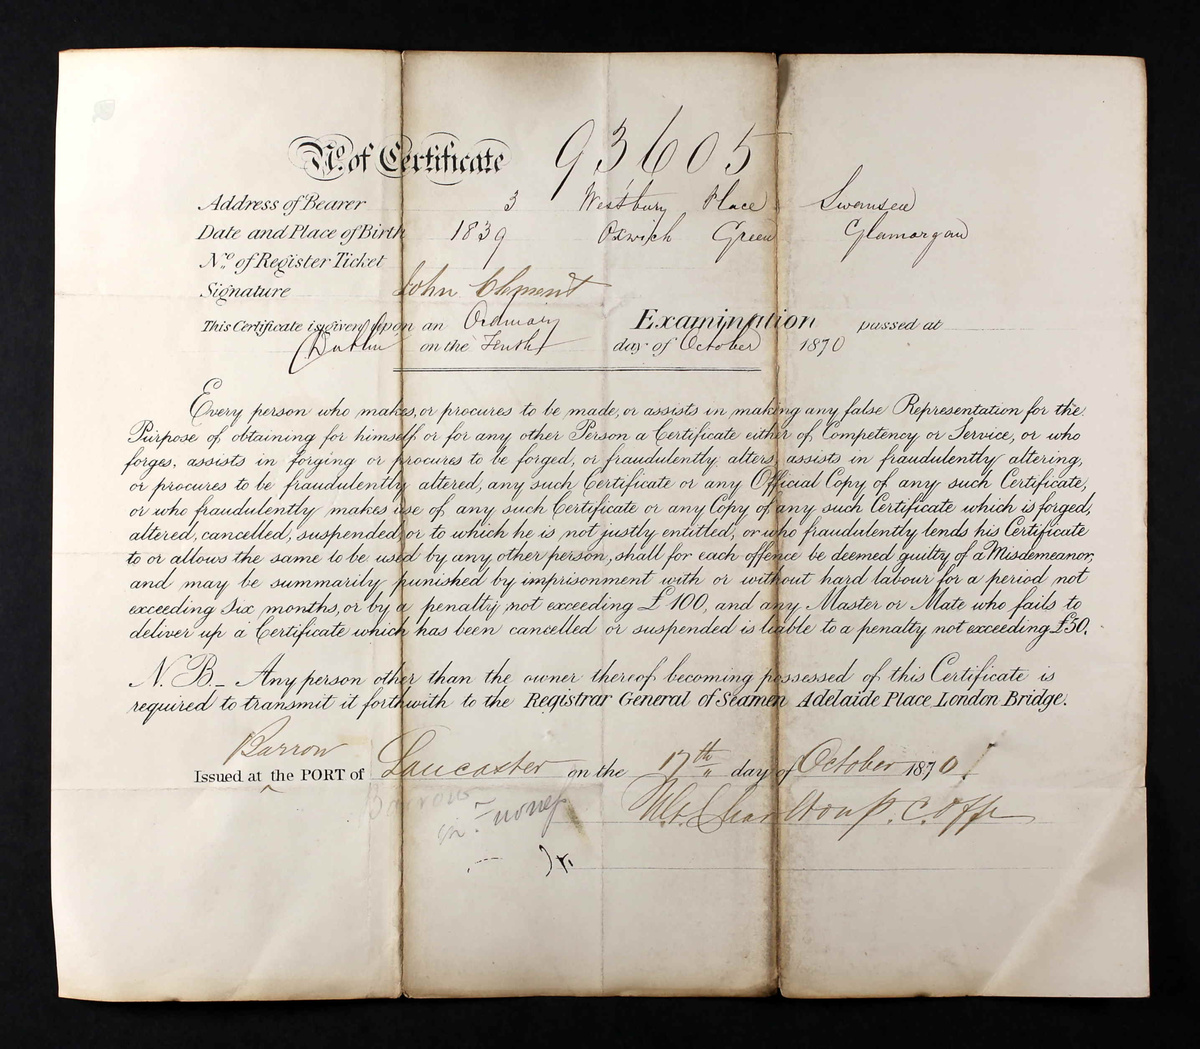 No. of Certificate 93605
Address of Bearer 3 Westbury Place Swansea
Date and Place of Birth 1839 Oxwich Green Glamorgan
No. of Register Ticket
Signature John Clement
This Certificate is given upon an Ordinary Examination passed at
Dublin on the Tenth day of October 1870
Every person who makes, or procures to be made, or assists in making any false Representation for the
Purpose of obtaining for himself or for any other Person a Certificate either of Competency or Service, or who
forges, assists in forging or procures to be forged, or fraudulently alters, assists in fraudulently altering,
or procures to be fraudulently altered, any such Certificate or any Official Copy of any such Certificate,
or who fraudulently makes use of any such Certificate or any Copy of any such Certificate which is forged,
altered, cancelled, suspended, or to which he is not justly entitled, or who fraudulently lends his Certificate
to or allows the same to be used by any other person, shall for each offence be deemed guilty of a Misdemeanor,
and may be summarily punished by imprisonment with or without hard labour for a period not
exceeding Six months, or by a penalty not exceeding £100, and any Master or Mate who fails to
deliver up a Certificate which has been cancelled or suspended is liable to a penalty not exceeding £50.
N.B._ Any person other than the owner thereof becoming possessed of this Certificate is
required to transmit it forthwith to the Registrar General of Seamen Adelaide Place London Bridge.
Barrow
Issued at the PORT of Lancaster on the 17th day of October 1870
Barrow
Charlton P. C. Offr